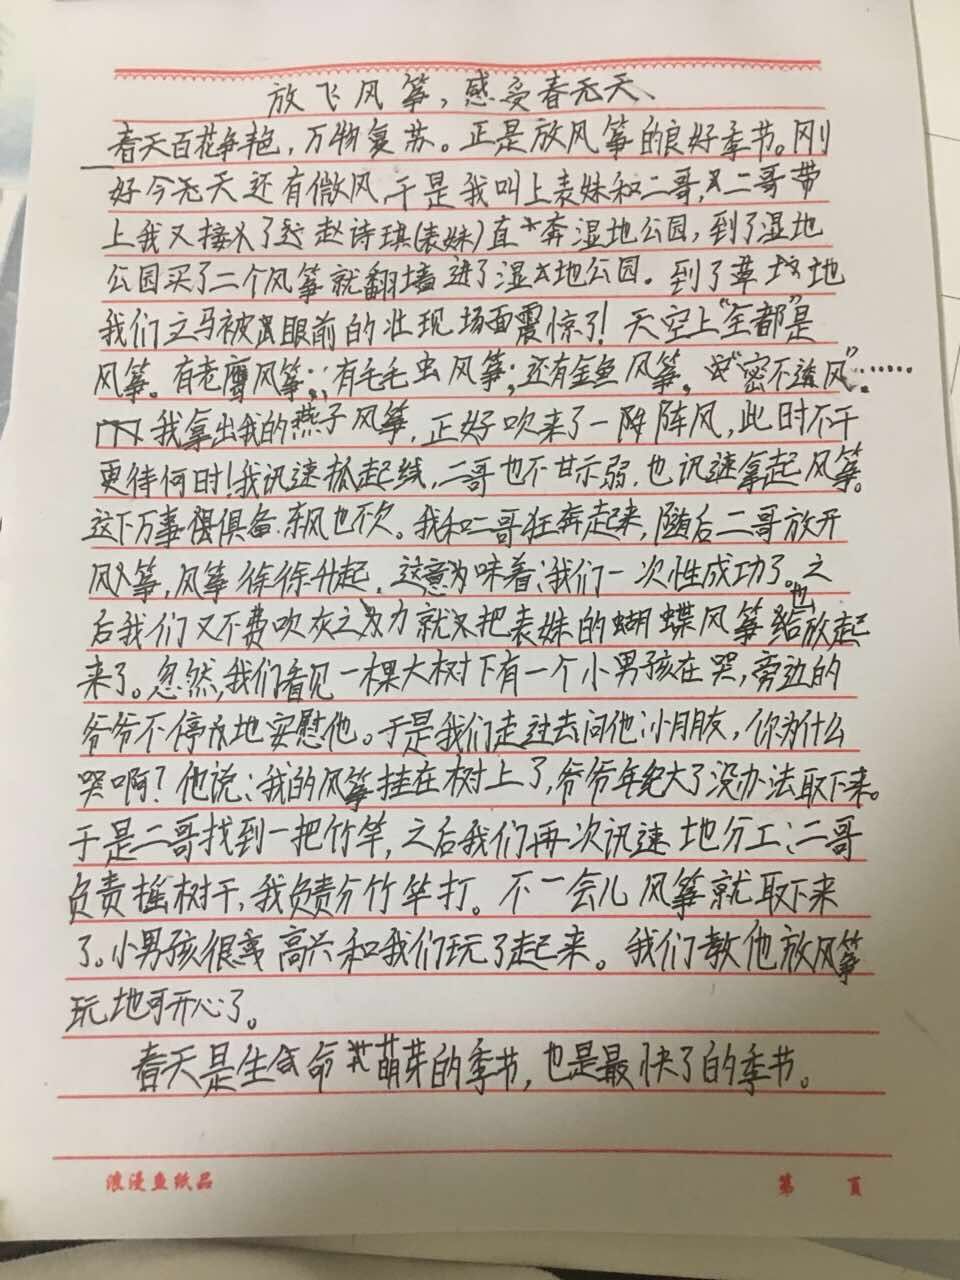 放飞风筝，感受春天、
春天百花争艳，万物复苏。正是放风筝的良好季节。刚
好今天还有微风，于是我叫上表妹和二哥，二哥带
上我又接了赵诗琪(表妹)直奔湿地公园，到了湿地
公园买了二个风筝就翻墙进了湿地公园。到了草地
我们立马被眼前的壮现场面震惊了！天空上“全都”是
风筝。有老鹰风筝；有毛毛虫风筝；还有金鱼风筝，“密不透风”……
我拿出我的燕子风筝，正好吹来了一阵阵风，此时不干
更待何时！我讯速抓起线，二哥也不甘示弱，也讯速拿起风筝。
这下万事俱备，东风也不欠。我和二哥狂奔起来，随后二哥放开
风筝，风筝徐徐升起，这意为味着：我们一次性成功了。之
后我们又不费吹灰之力就把表妹的蝴蝶风筝也给放起
来了。忽然，我们看见一棵大树下有一个小男孩在哭，旁边的
爷爷不停地安慰他。于是我们走过去问他：小朋友，你为什么
哭啊？他说：我的风筝挂在树上了，爷爷年纪大了没办法取下来。
于是二哥找到一把竹竿，之后我们再次讯速地分工：二哥
负责摇树干，我负责分竹竿打。不一会儿风筝就取下来
了。小男孩很高兴和我们玩了起来。我们教他放风筝
玩地可开心了。
春天是生命萌芽的季节，也是最快了的季节。
浪漫鱼纸品
第 頁